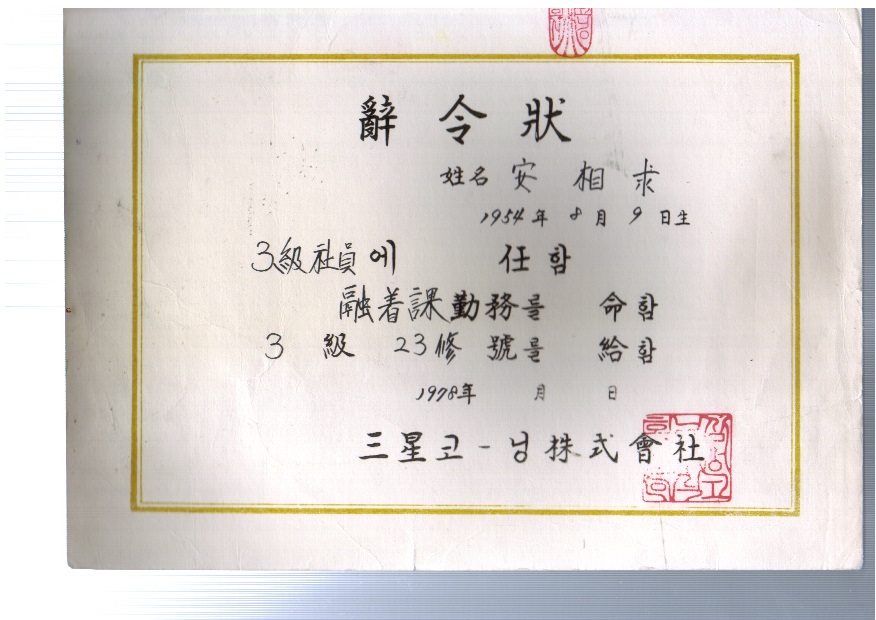 辭令狀
姓名 安 相 求
1954年 8月 9日生
3級社員에 任함
融着課勤務를 命함
3 級 23修 號를 給함
1978年 月 日
三星코-닝株式會社